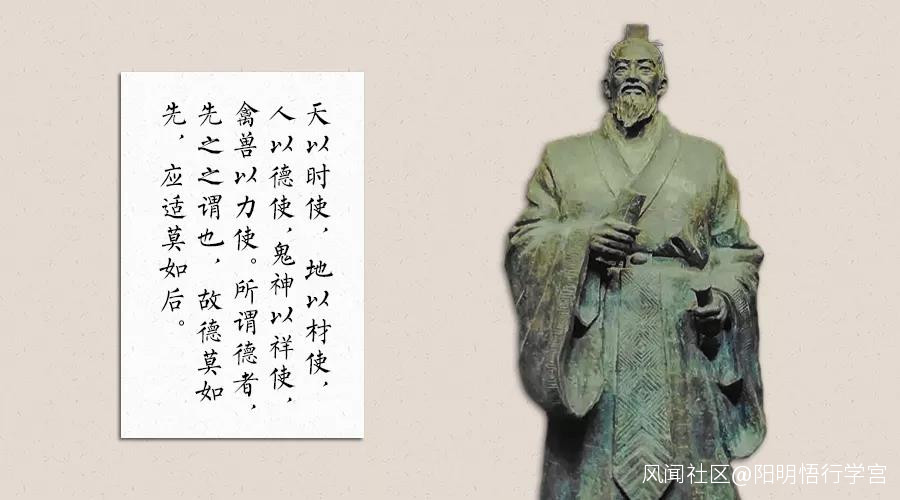 天以时使，地以材使，
人以德使，鬼神以祥使，
禽兽以力使。所谓德者，
先之之谓也，故德莫如
先，应适莫如后。
风闻社区@阳明悟行学宫